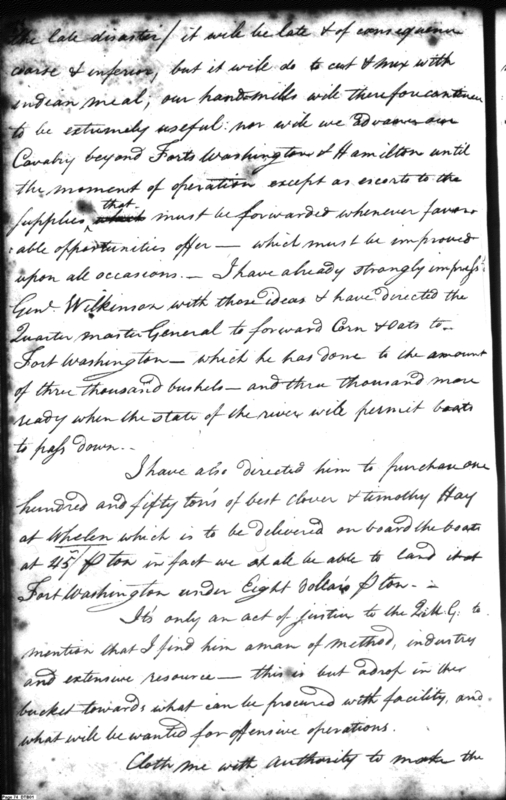 the late disaster/ it will be late & of consequence
coarse & inferior, but it will do to cut & mix with
indean meal, our handmills will therefore continue
to be extremely useful: nor will we advance our
Cavalry beyond Forts Washington & Hamilton until
the moment of operation except as escorts to the
supplies that must be forwarded whenever favor-
:able opportunities offer — which must be improved
upon all occasions. — I have already strongly impress'd
Genl. Wilkinson with those ideas & have directed the
Quarter master General to forward Corn & Oats to
Fort Washington — which he has done to the amount
of three thousand bushels — and three thousand more
ready when the state of the river will permit boats
to pass down. —
I have also directed him to purchase one
hundred and fifty tons of best clover & timothy Hay
at Whelen which is to be delivered on board the boats
at 45/ ⅌ ton in fact we shall be able to land it at
Fort Washington under Eight dollars ⅌ ton. —
It's only an act of justice to the Q:M:G: to
mention that I find him a man of method, industry
and extensive resource — this is but a drop in the
bucket towards what can be procured with facility, and
what will be wanted for offensive operations.
Cloth me with authority to make the